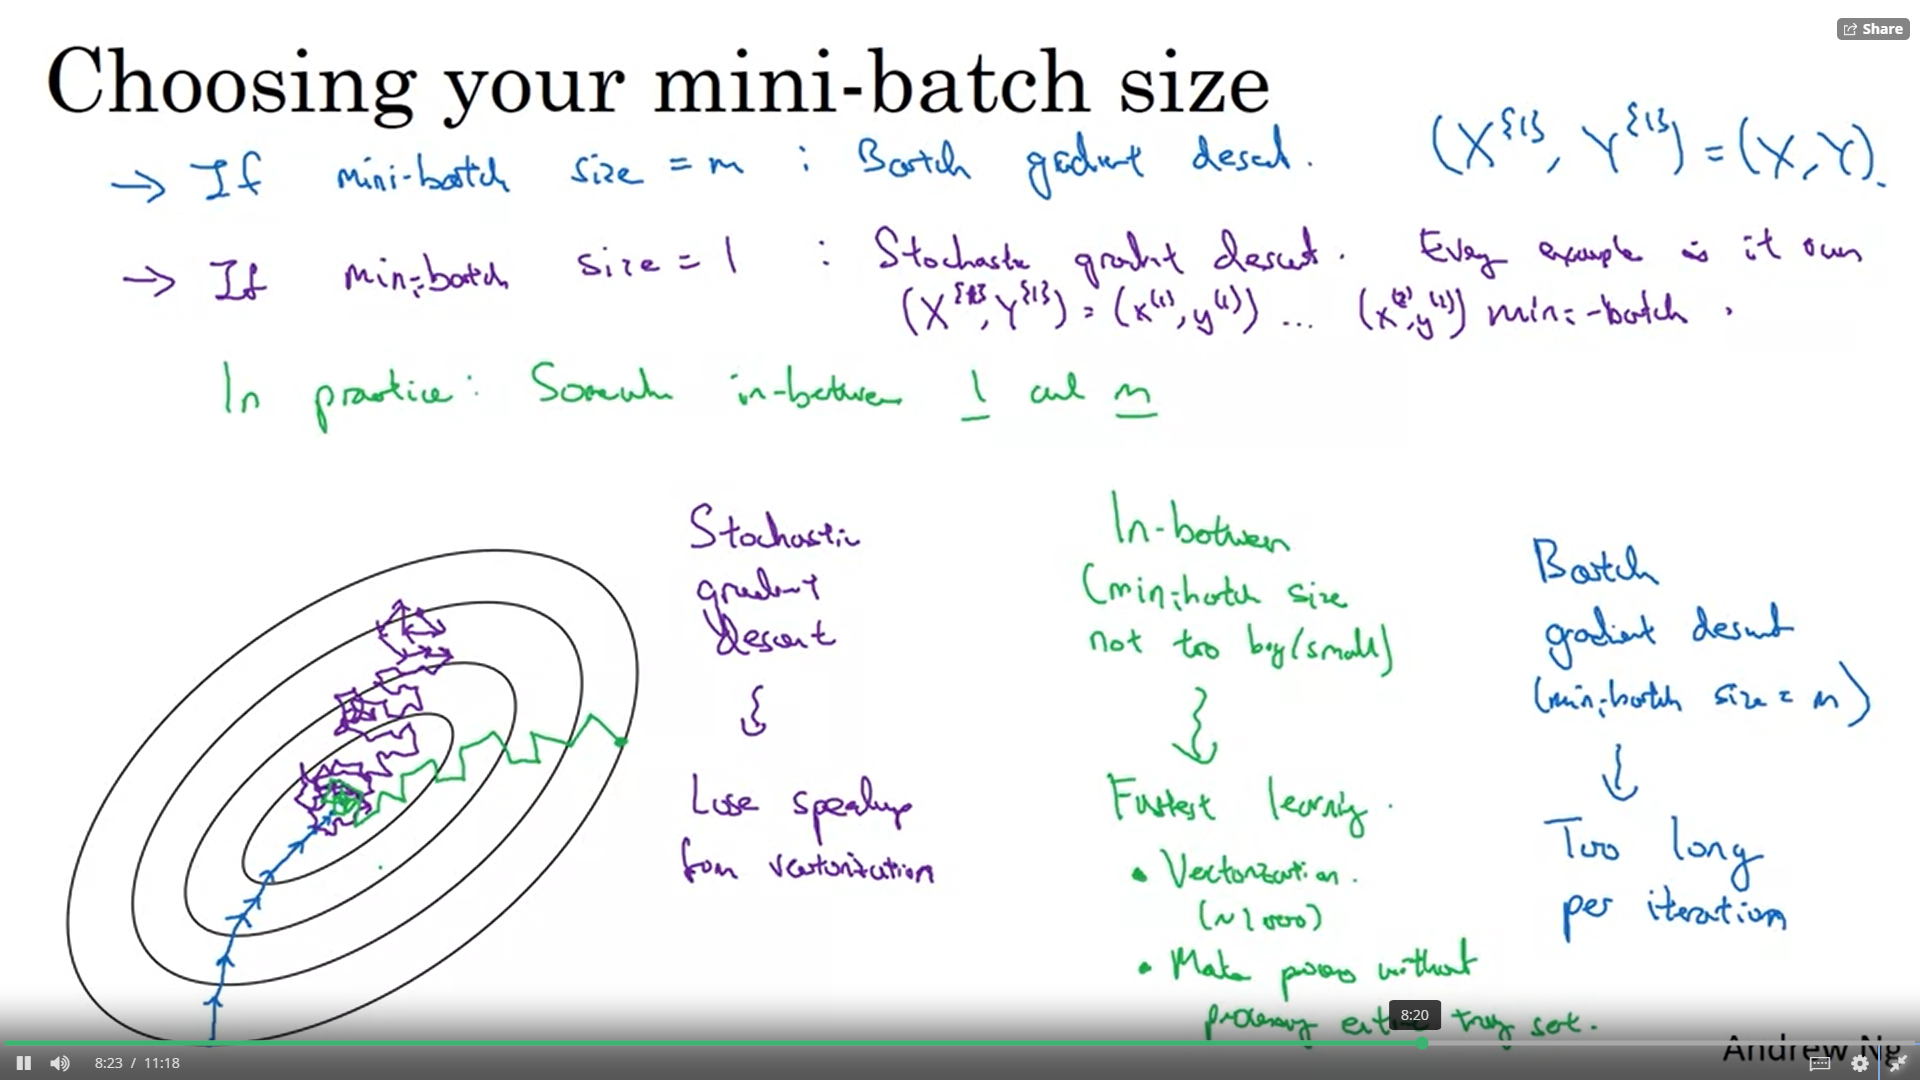 Share
Choosing your mini-batch size
→ If mini-batch size = m : Batch gradient descent. (X^{1}, Y^{1}) = (X, Y).
→ If mini-batch size = 1 : Stochastic gradient descent. Every example is it own
(X^{1}, Y^{1}) = (x^(1), y^(1)) ... (x^(2), y^(2)) mini-batch.
In practice: Somewhere in-between 1 and m
Stochastic
gradient
descent
Lose speedup
from vectorization
In-between
(mini-batch size
not too big/small)
Fastest learning.
• Vectorization.
(~1000)
• Make progress without
processing entire training set.
Batch
gradient descent
(mini-batch size = m)
Too long
per iteration
8:20
8:23 / 11:18
Andrew Ng